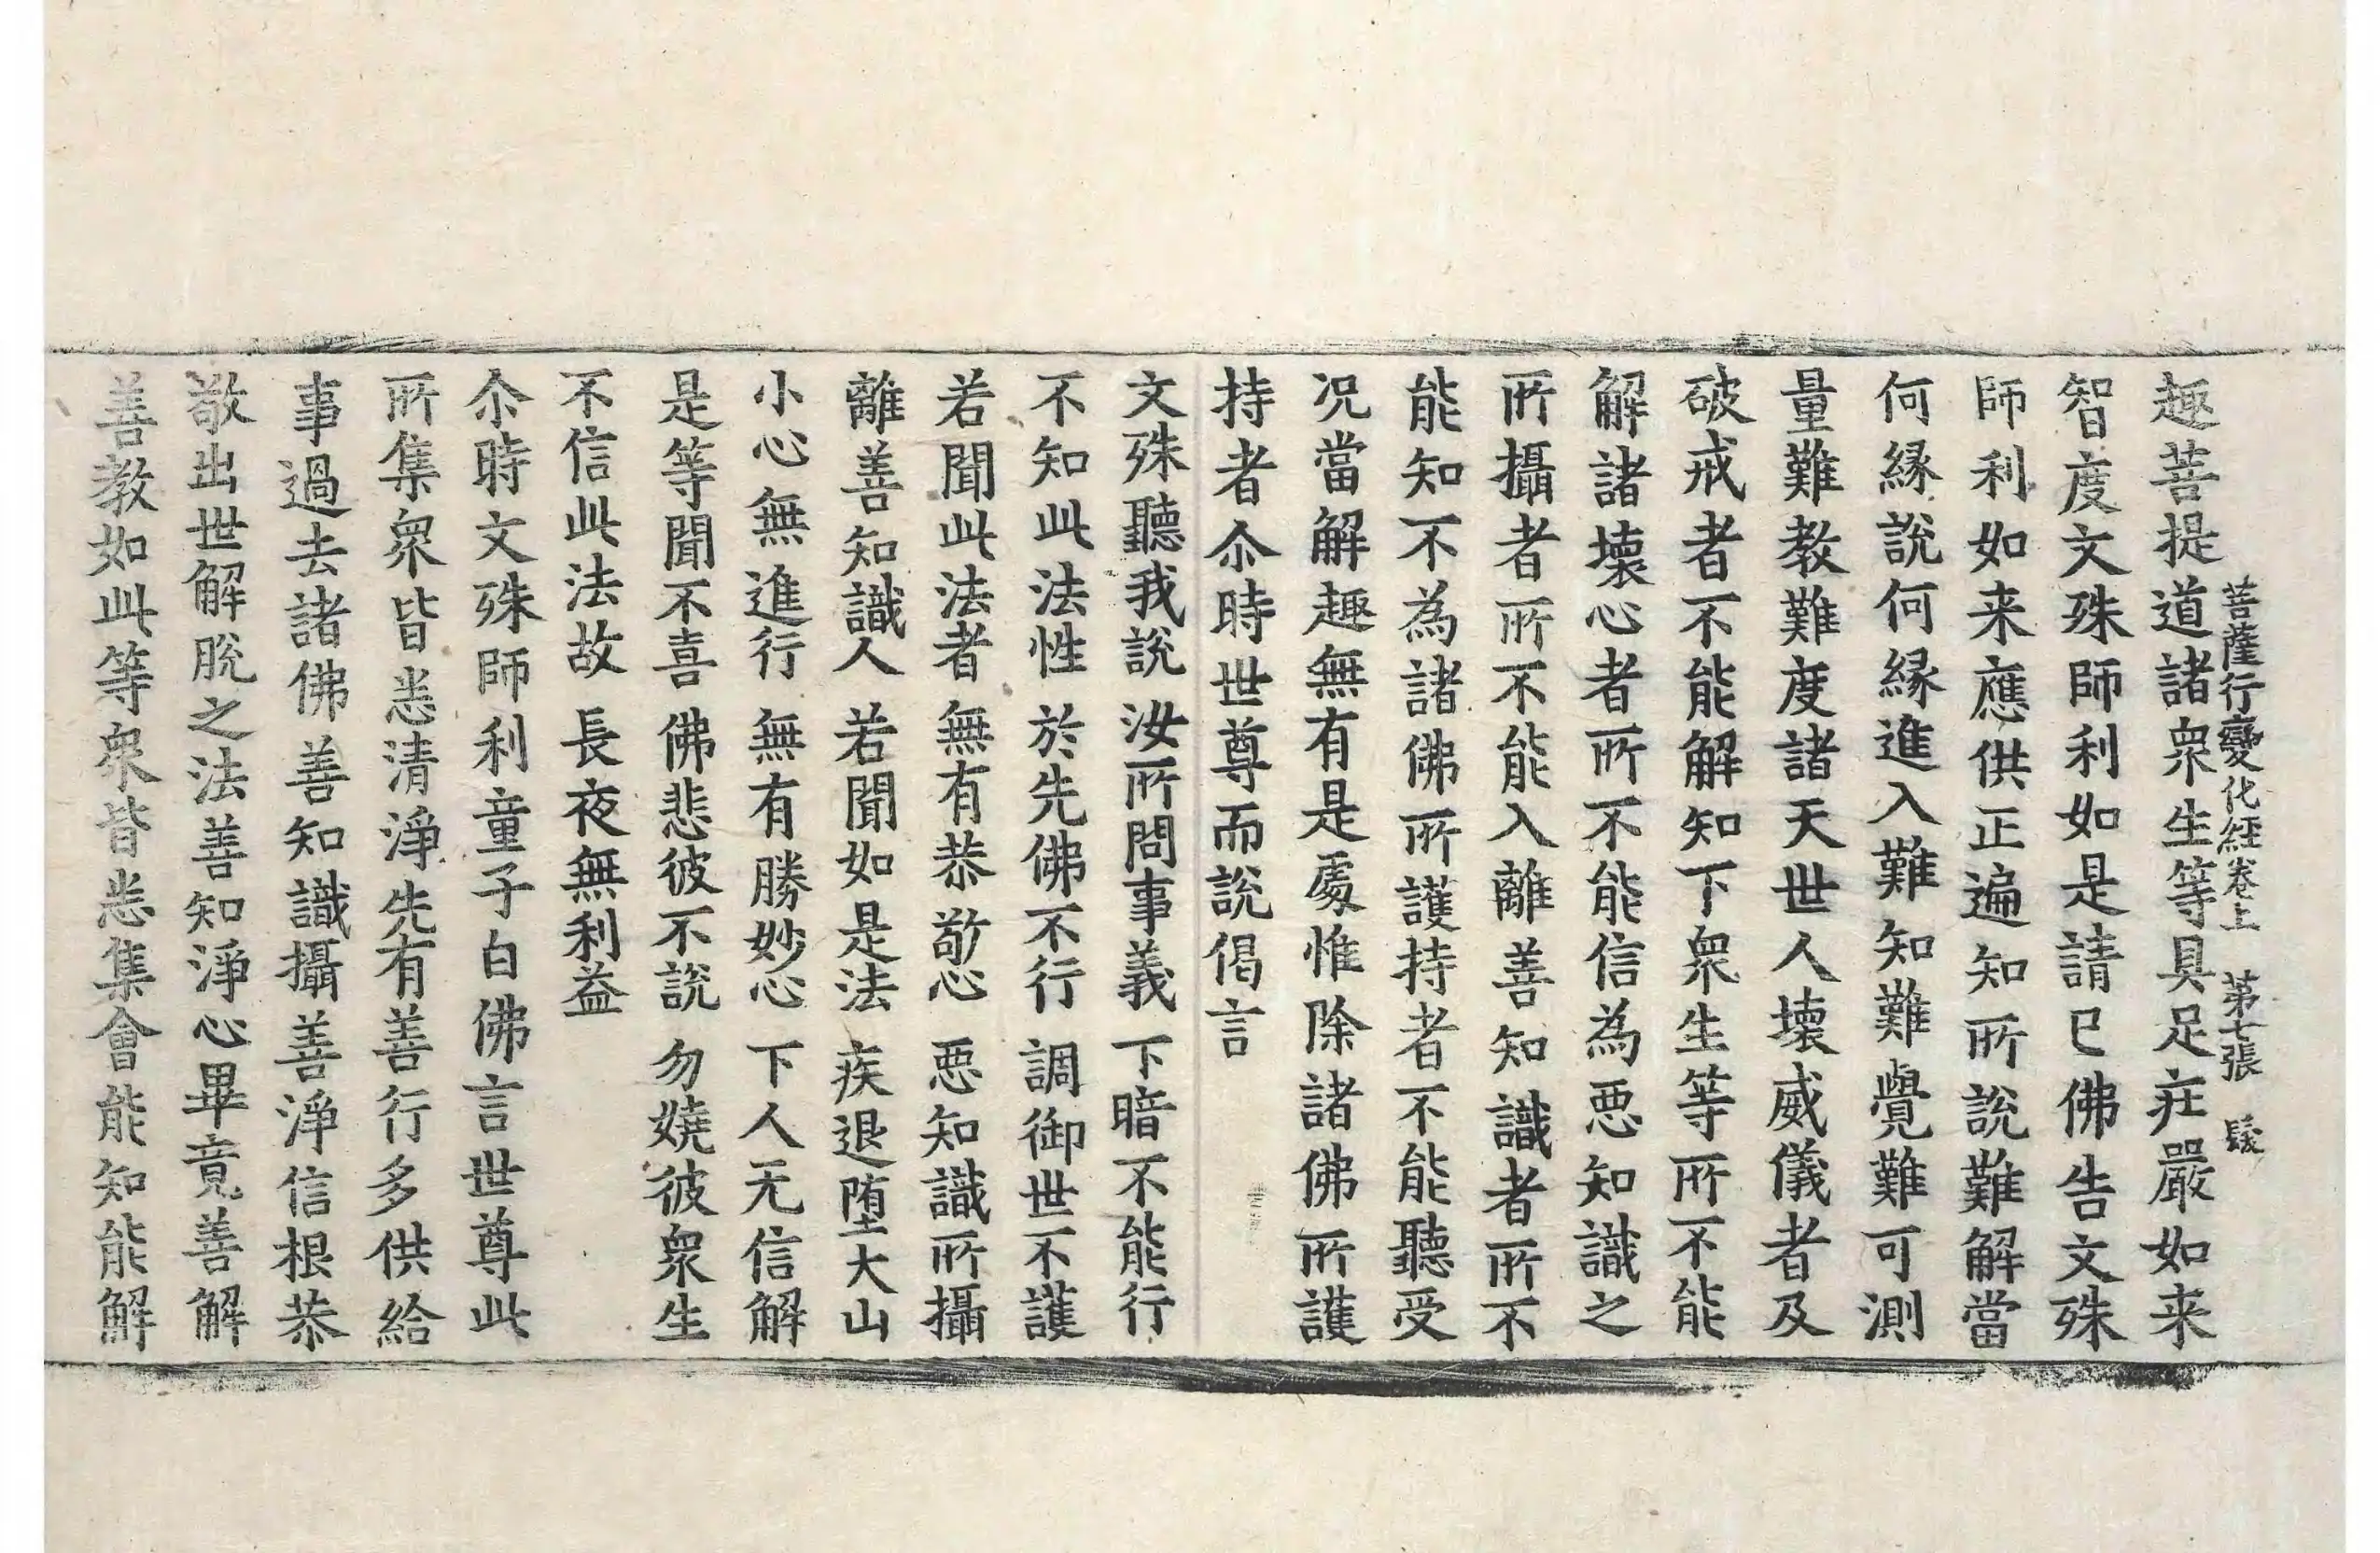 菩薩行變化經卷上　第七張　髮
趣菩提道諸衆生等具足莊嚴如来
智度文殊師利如是請已佛告文殊
師利如来應供正遍知所說難解當
何縁說何縁進入難知難覺難可測
量難教難度諸天世人壞威儀者及
破戒者不能解知下衆生等所不能
解諸壞心者所不能信為悪知識之
所攝者所不能入離善知識者所不
能知不為諸佛所護持者不能聽受
况當解趣無有是處惟除諸佛所護
持者尒時世尊而說偈言
文殊聽我說　汝所問事義　下暗不能行
不知此法性　於先佛不行　調御世不護
若聞此法者　無有恭敬心　悪知識所攝
離善知識人　若聞如是法　疾退堕大山
小心無進行　無有勝妙心　下人无信解
是等聞不喜　佛悲彼不說　勿嬈彼衆生
不信此法故　長夜無利益
尒時文殊師利童子白佛言世尊此
所集衆皆悉清淨先有善行多供給
事過去諸佛善知識攝善淨信根恭
敬出世解脫之法善知淨心畢竟善解
善教如此等衆皆悉集會能知能解